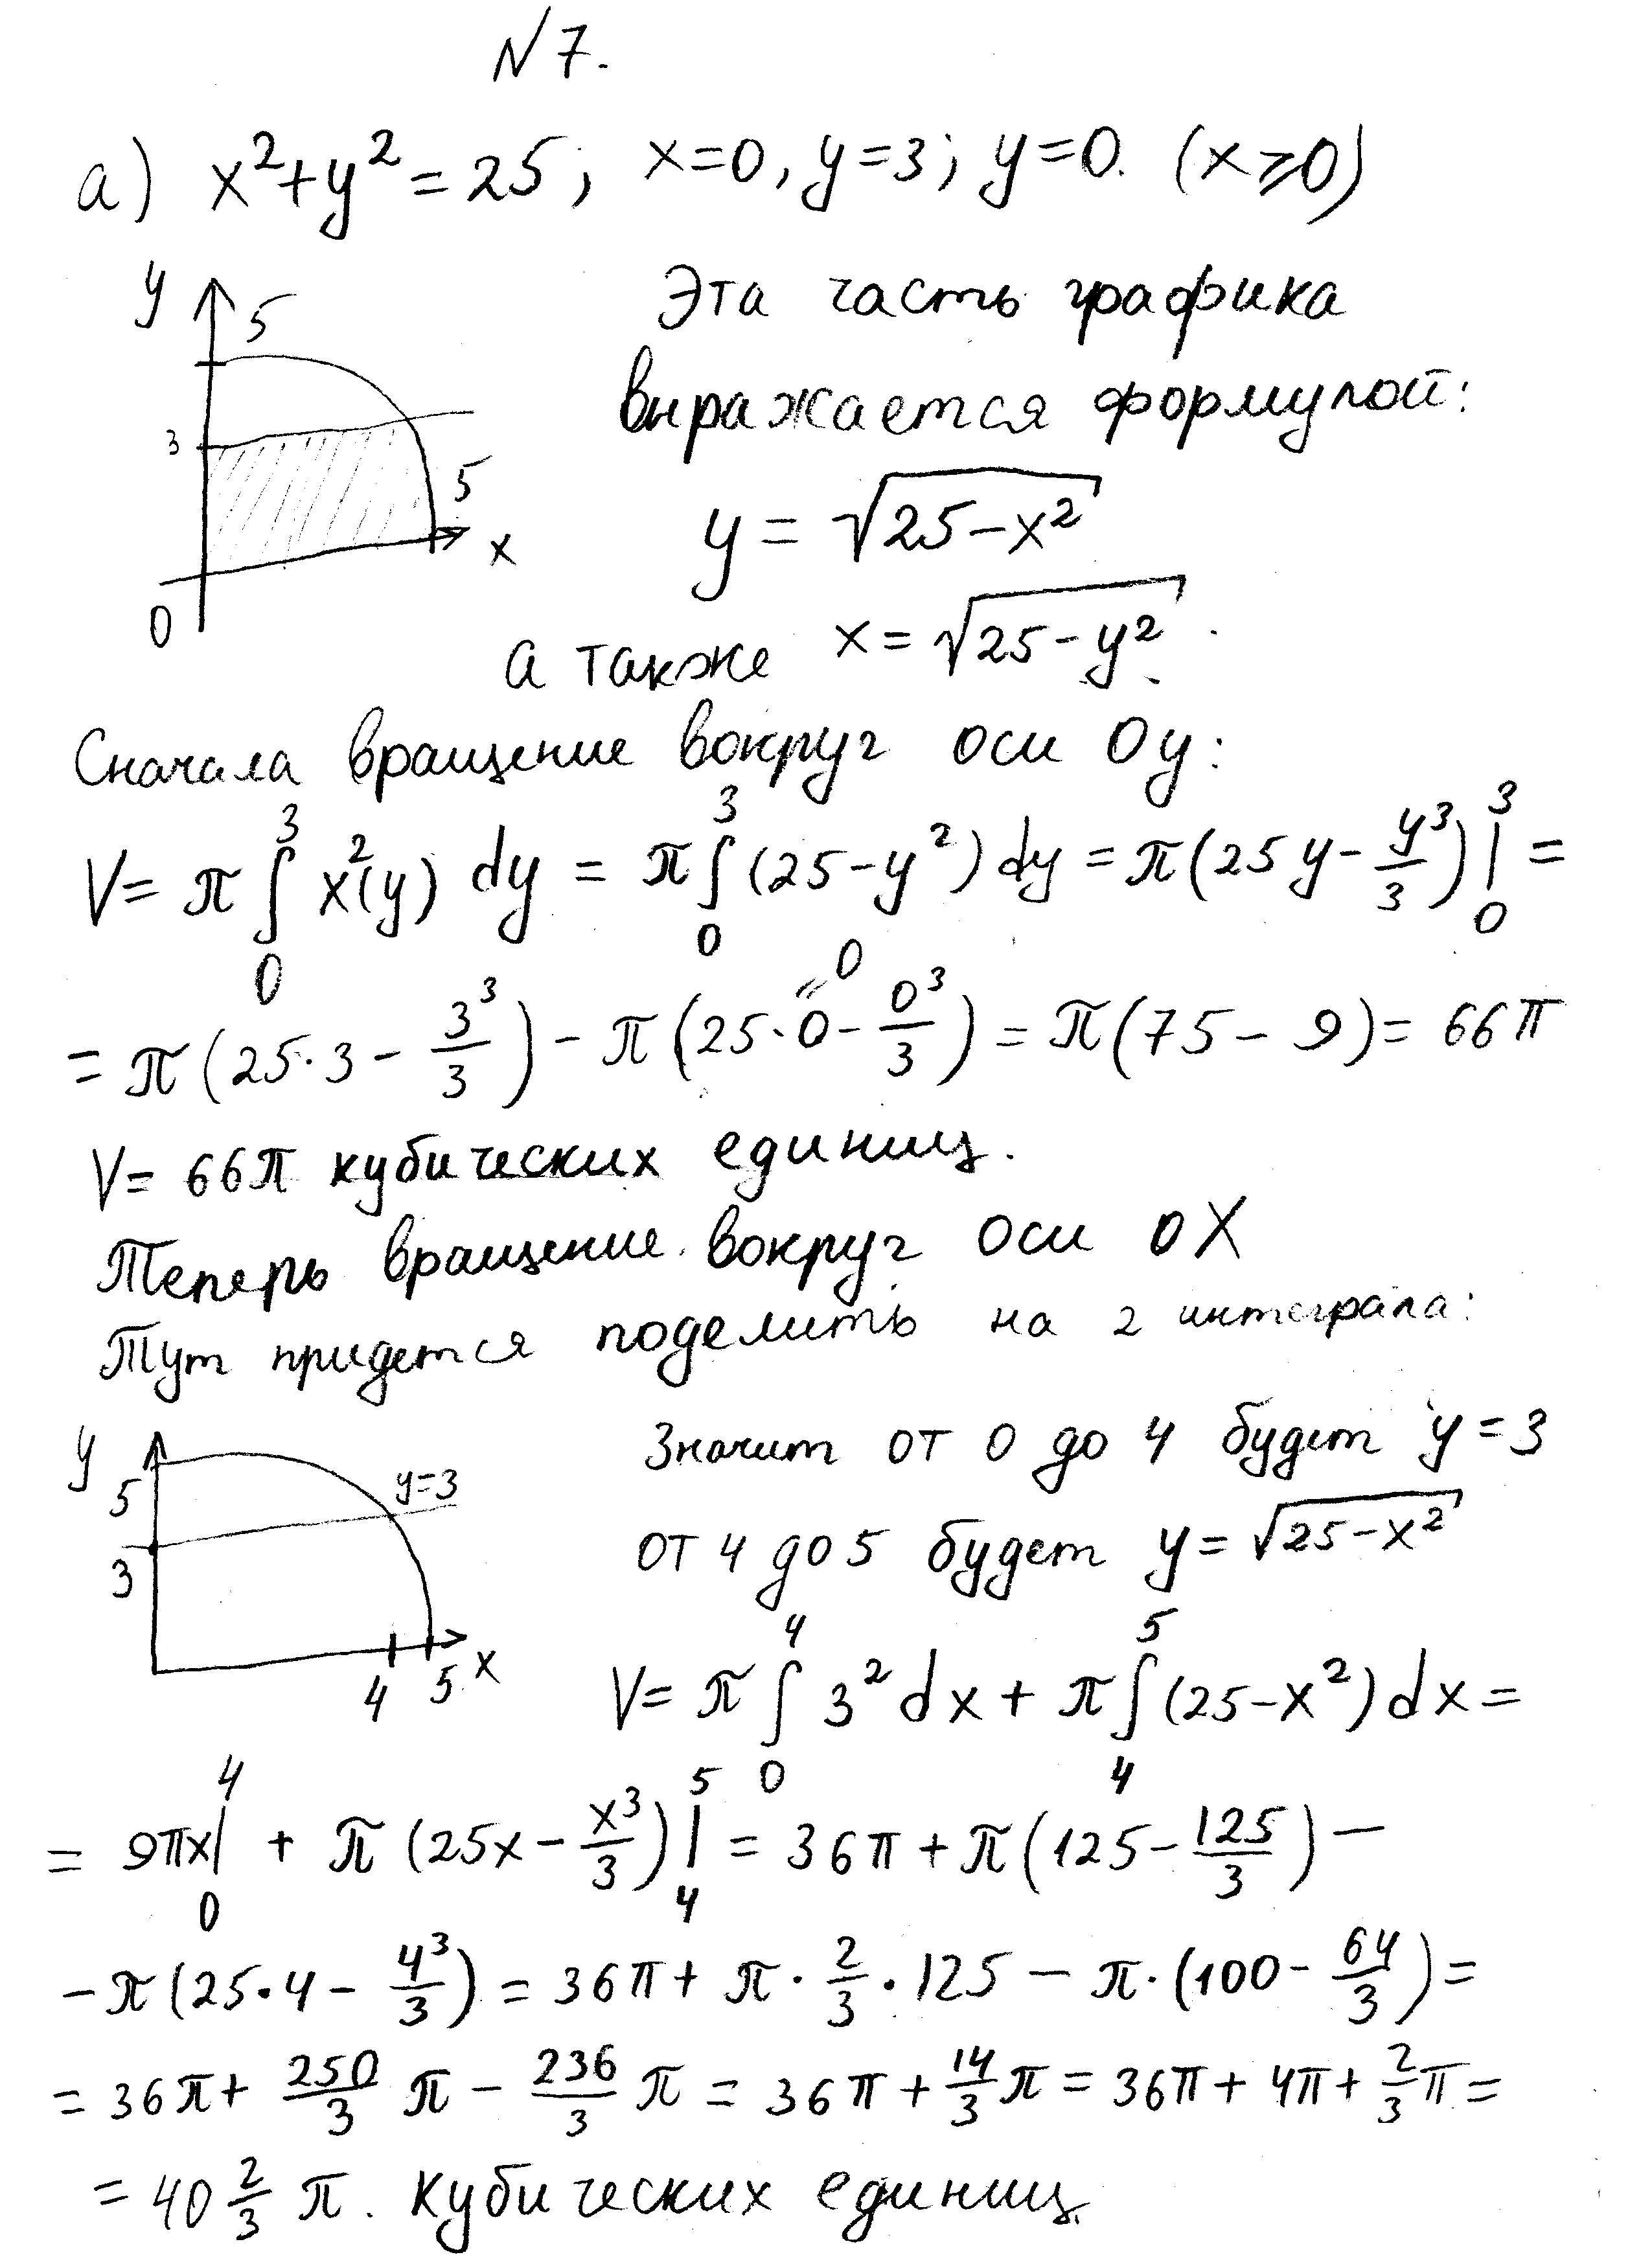 №7.
а) x²+y²=25; x=0, y=3; y=0. (x⩾0)
y
5
3
5
x
0
Эта часть графика
выражается формулой:
y = √(25-x²)
а также x = √(25-y²).
Сначала вращение вокруг оси Oy:
V= π ∫₀³ x²(y) dy = π ∫₀³ (25-y²) dy = π(25y - y³/3) |₀³ =
= π (25·3 - 3³/3) - π (25·0 - 0³/3) = π(75 - 9) = 66π
"0
V= 66π кубических единиц.
Теперь вращение вокруг оси OX
Тут придется поделить на 2 интеграла:
y
5
y=3
3
4 5 x
Значит от 0 до 4 будет y=3
от 4 до 5 будет y = √(25-x²)
V= π ∫₀⁴ 3² dx + π ∫₄⁵ (25-x²) dx =
= 9πx |₀⁴ + π (25x - x³/3) |₄⁵ = 36π + π(125 - 125/3) -
- π(25·4 - 4³/3) = 36π + π · 2/3 · 125 - π·(100 - 64/3) =
= 36π + 250/3 π - 236/3 π = 36π + 14/3 π = 36π + 4π + 2/3 π =
= 40 2/3 π. кубических единиц.